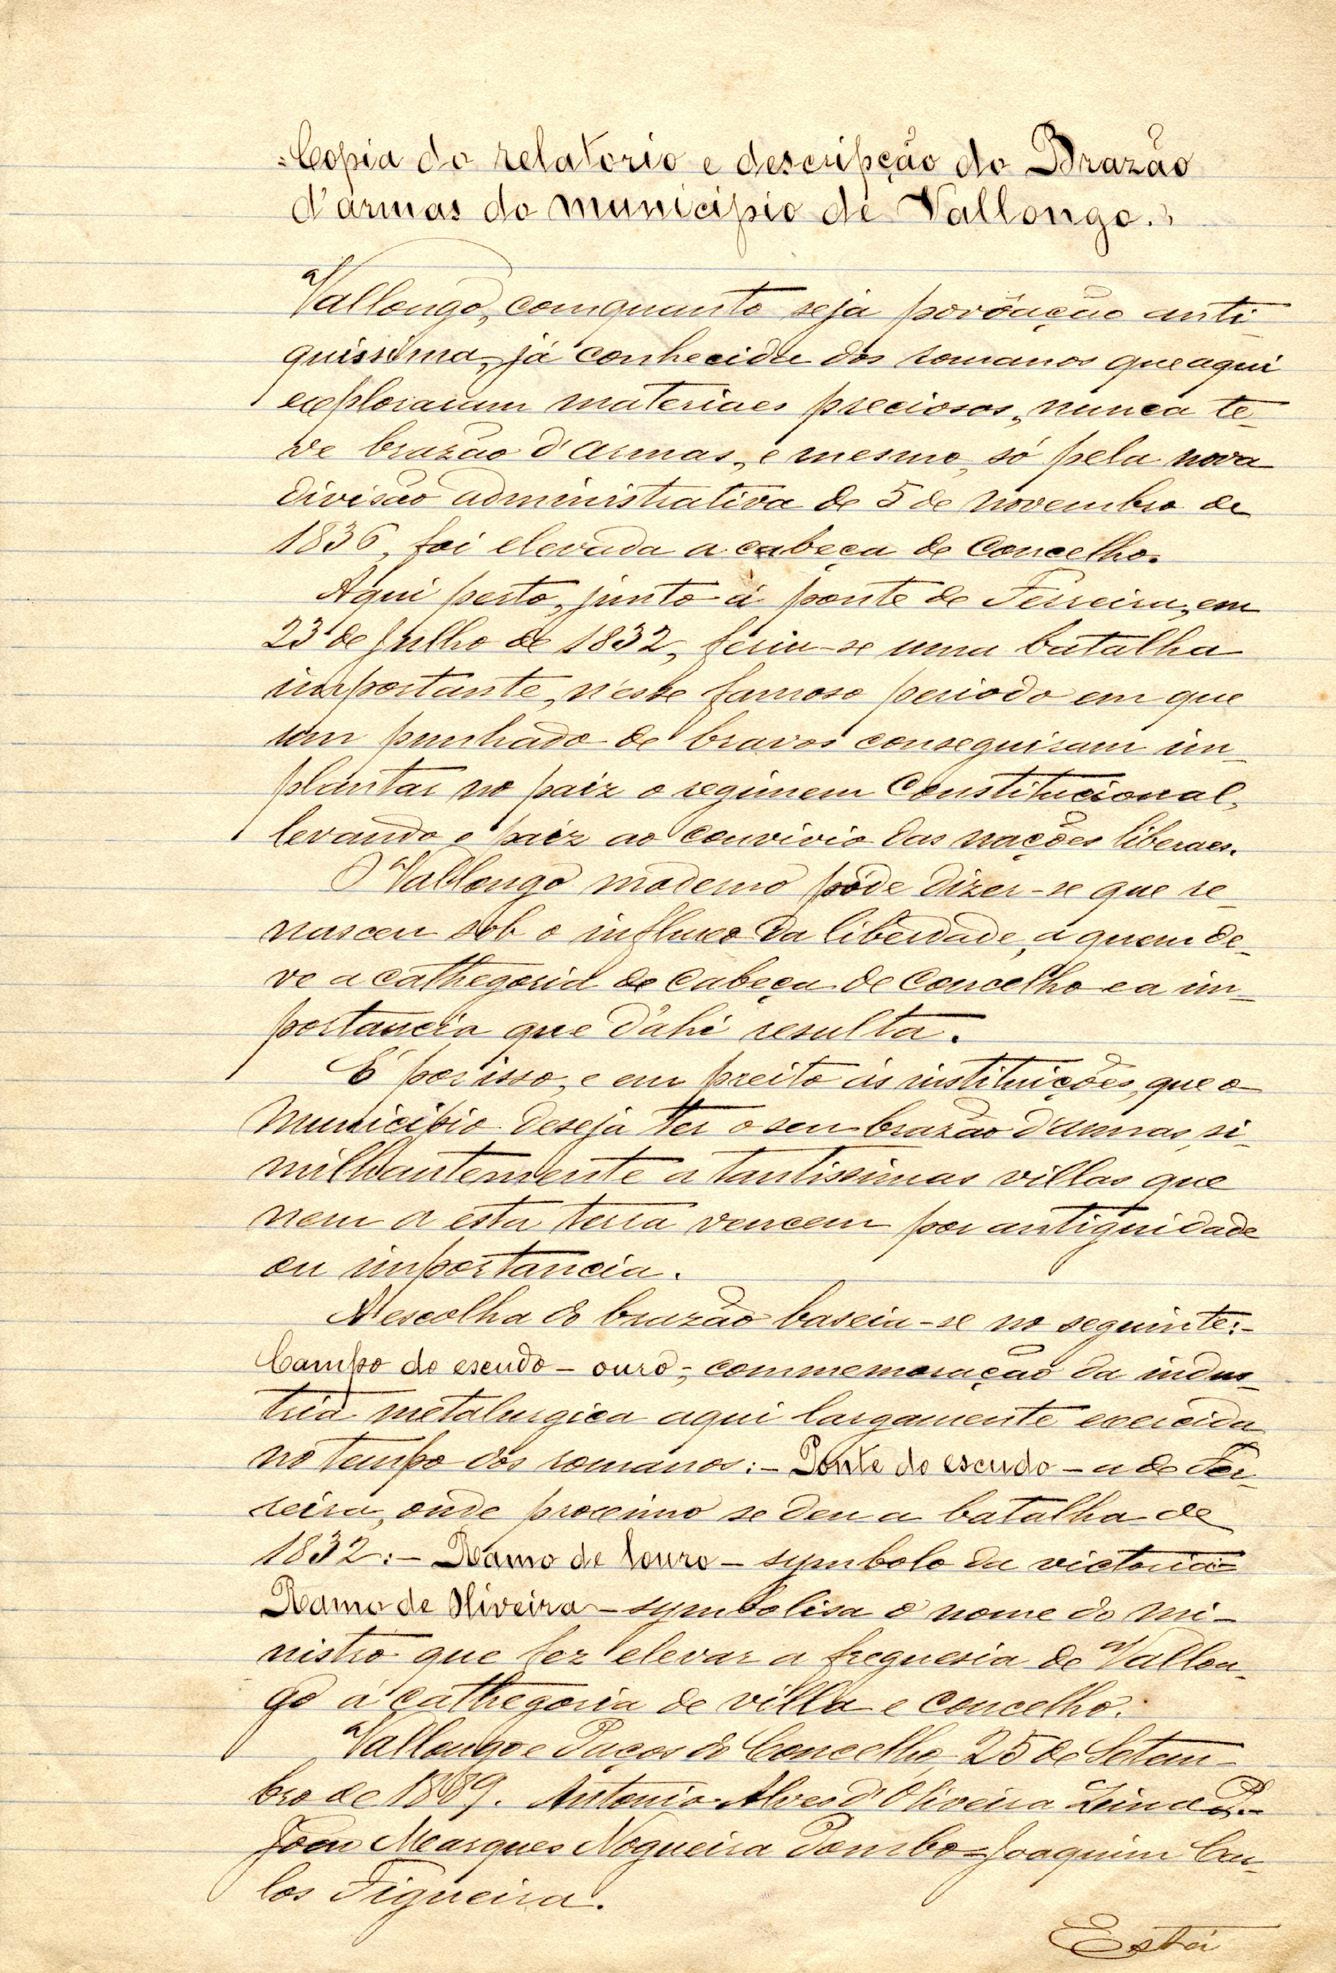 "Copia do relatorio e descripção do Brazão
d'armas do municipio de Vallongo."
Vallongo, comquanto seja povôação anti
quissima, já conhecida dos romanos que aqui
exploraram materiaes preciosos, nunca te-
ve brazão d'armas, e mesmo só pela nova
divisão administrativa de 5 de novembro de
1836, foi elevada a cabeça de Concelho.
Aqui perto, junto á ponte de Ferreira, em
23 de Julho de 1832, feriu-se uma batalha
importante, n'esse famoso periodo em que
um punhado de bravos conseguiram im-
plantar no paiz o regimem Constitucional,
levando o paiz ao convivio das nações liberaes.
O Vallongo moderno póde dizer-se que re-
nasceu sob o influxo da liberdade, a quem de-
ve a cathegoria de cabeça de Concelho e a im-
portancia que d'ahi resulta.
É por isso, e em preito ás instituições, que o
Municipio deseja ter o seu brazão d'armas, si-
milhantemente a tantissimas villas que
nem a esta terra vencem por antiguidade
ou importancia.
A escolha do brazão baseia-se no seguinte:-
Campo do escudo - ouro-; commemoração da indus-
tria metalurgica aqui largamente exercida
no tempo dos romanos:- Ponte do escudo - a de Fer-
reira, onde proximo se deu a batalha de
1832:- Ramo de louro - symbolo da victoria=
Ramo de Oliveira - symbolisa o nome do mi-
nistro que fez elevar a freguesia de Vallon-
go á cathegoria de villa e concelho.
Vallongo e Paços do Concelho, 25 de Setem-
bro de 1889. Antonio Alves d'Oliveira Zina P.-
João Marques Nogueira Pombo=Joaquim Car-
los Figueira.
Está